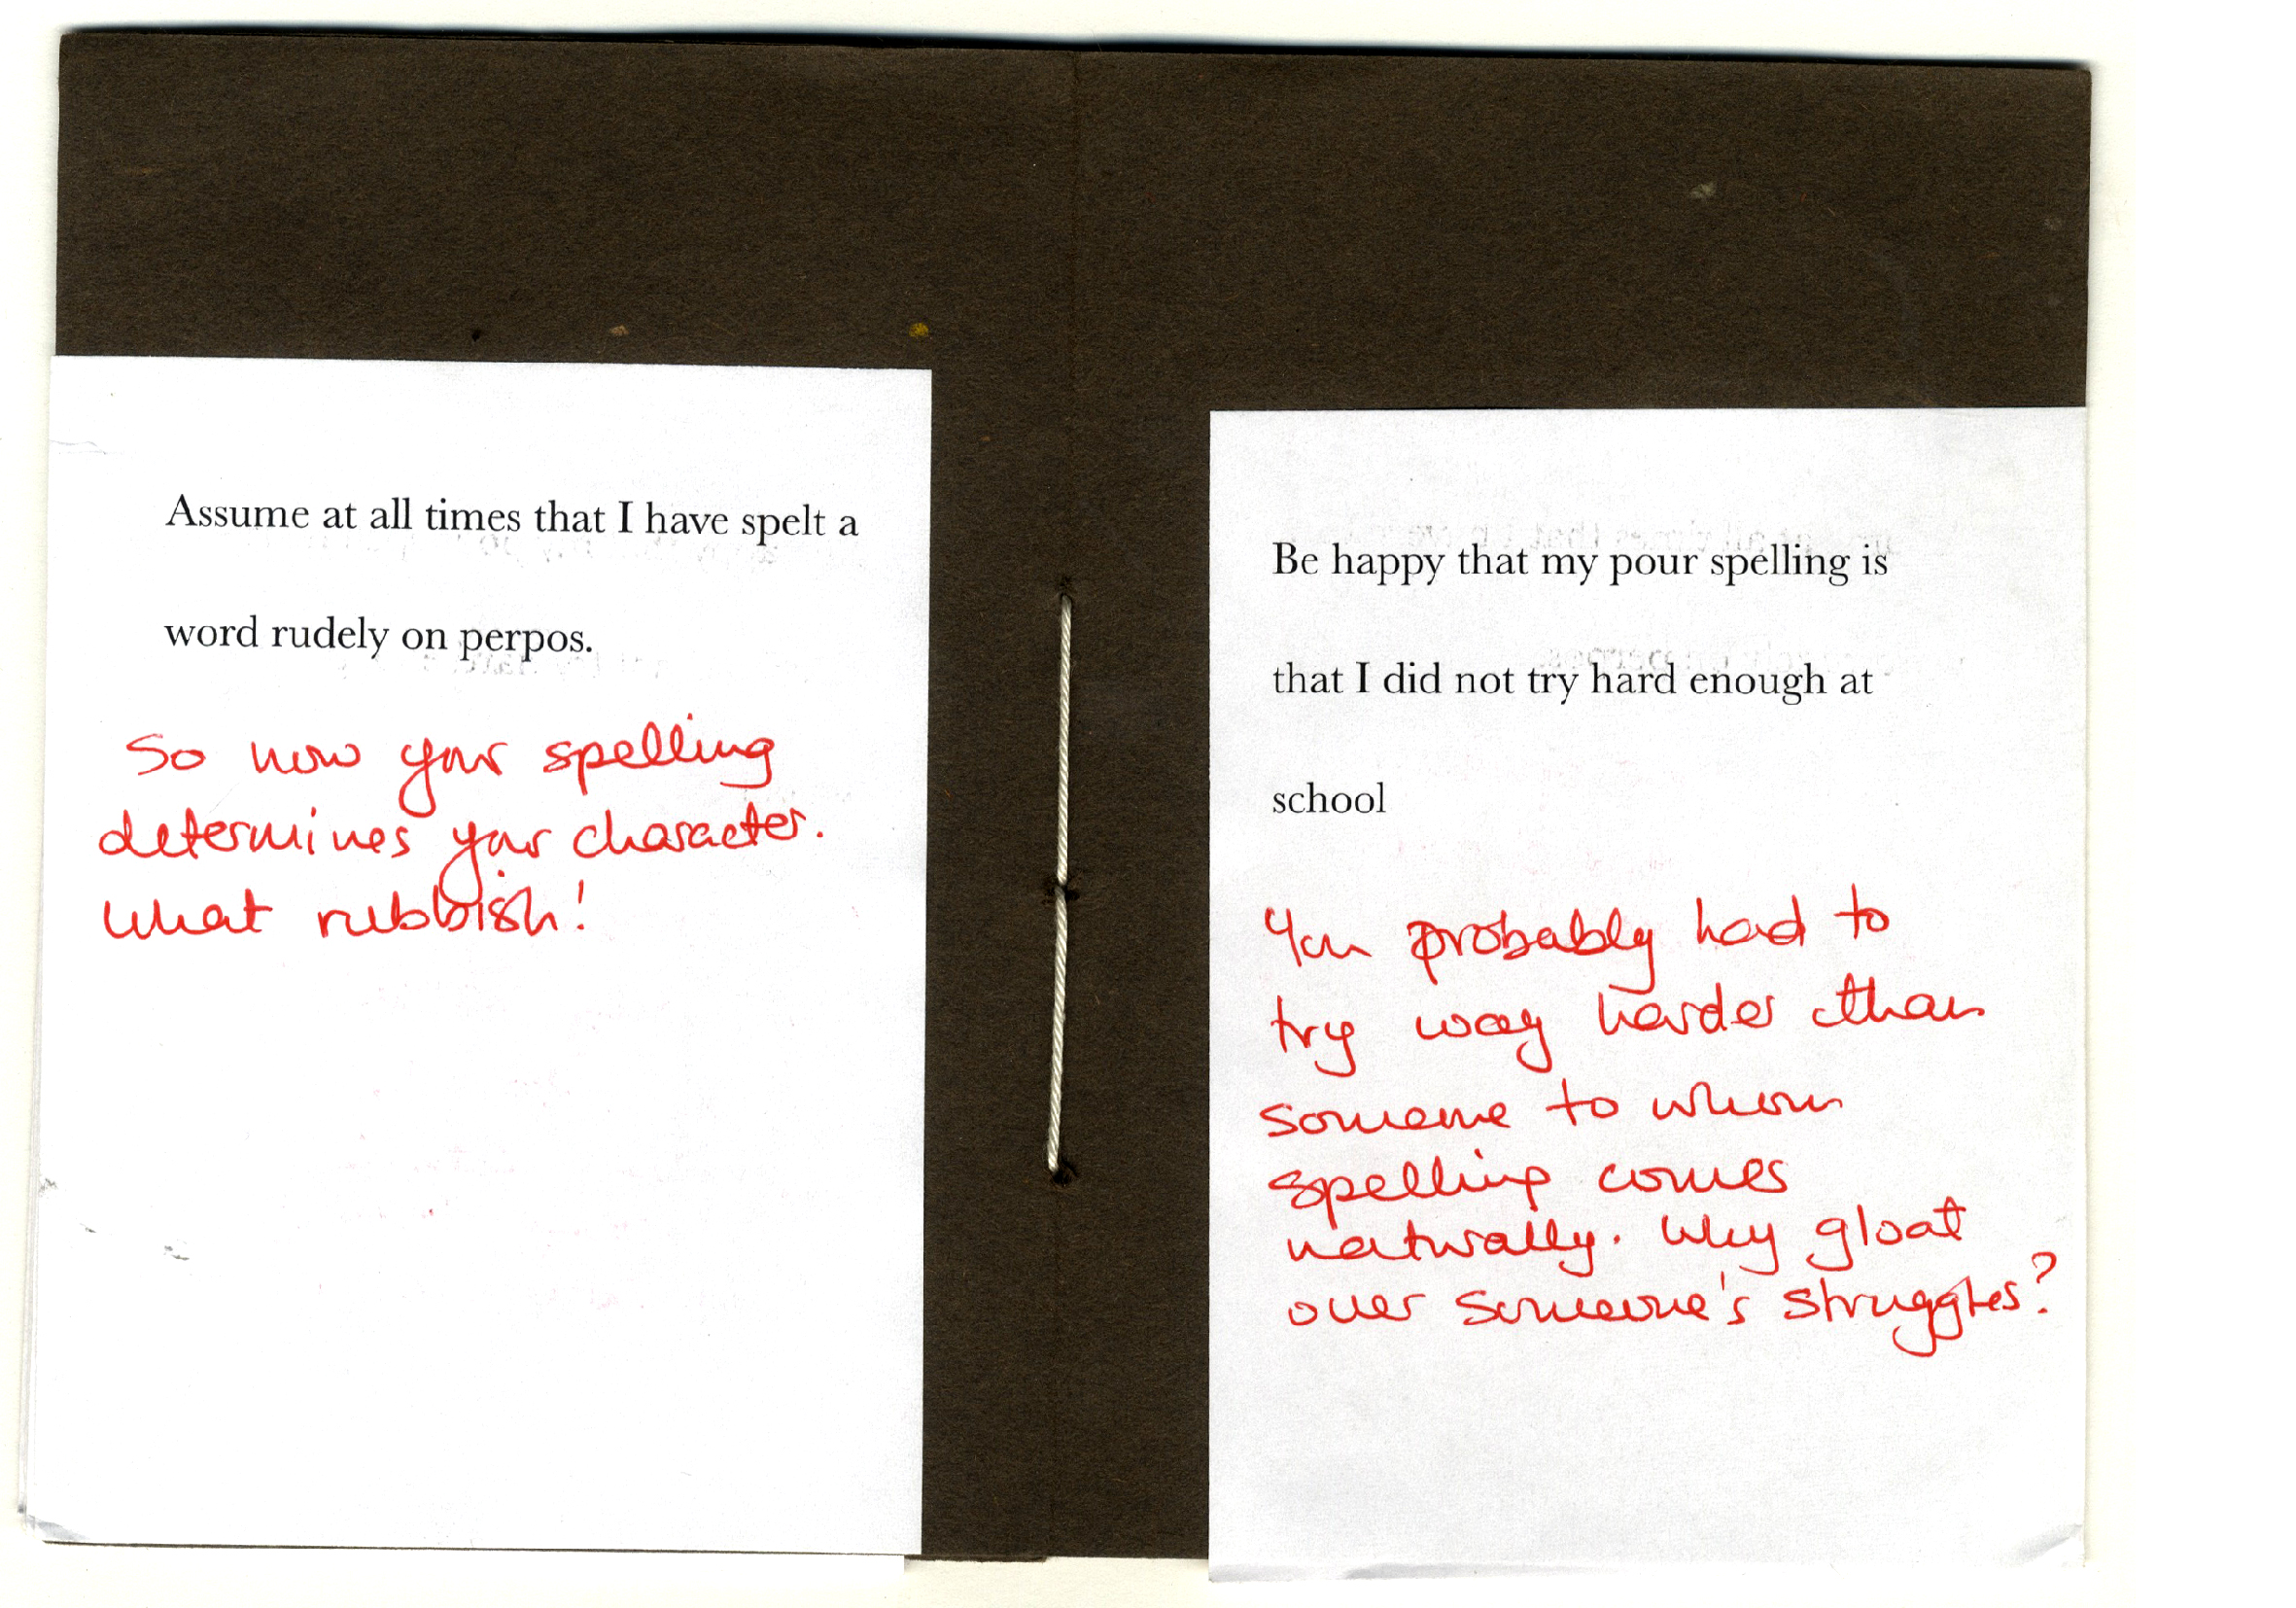 Assume at all times that I have spelt a
word rudely on perpos.
So now your spelling
determines your character.
What rubbish!
Be happy that my pour spelling is
that I did not try hard enough at
school
You probably had to
try way harder than
someone to whom
spelling comes
naturally. Why gloat
over someone's struggles?